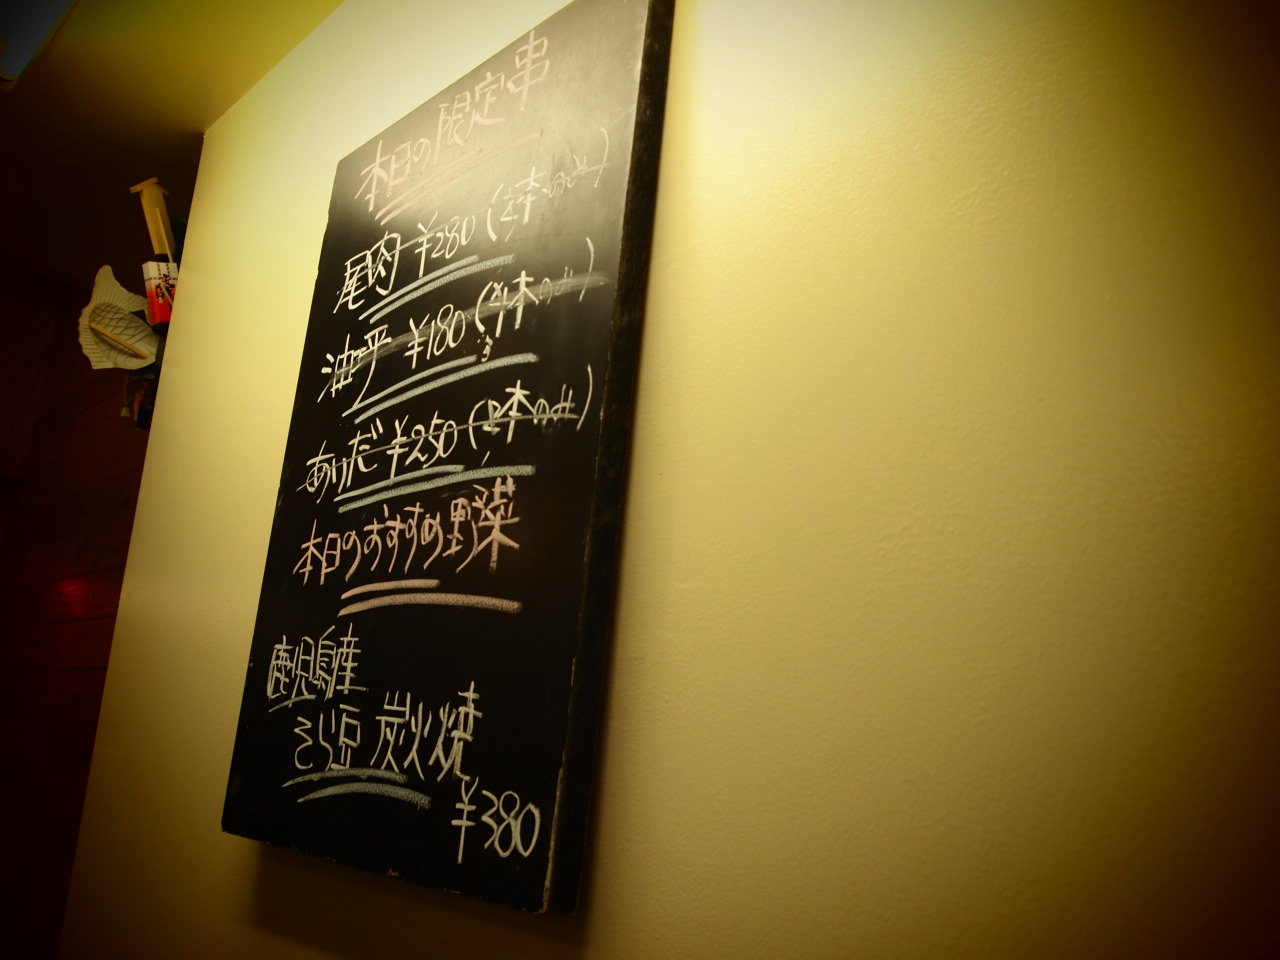 本日の限定串
尾肉 ¥280 (2本のみ)
油坪 ¥180 (本のみ)
あけだ ¥250 (2本のみ)
本日のおすすめ野菜
鹿児島産
そら豆 炭火焼
¥380